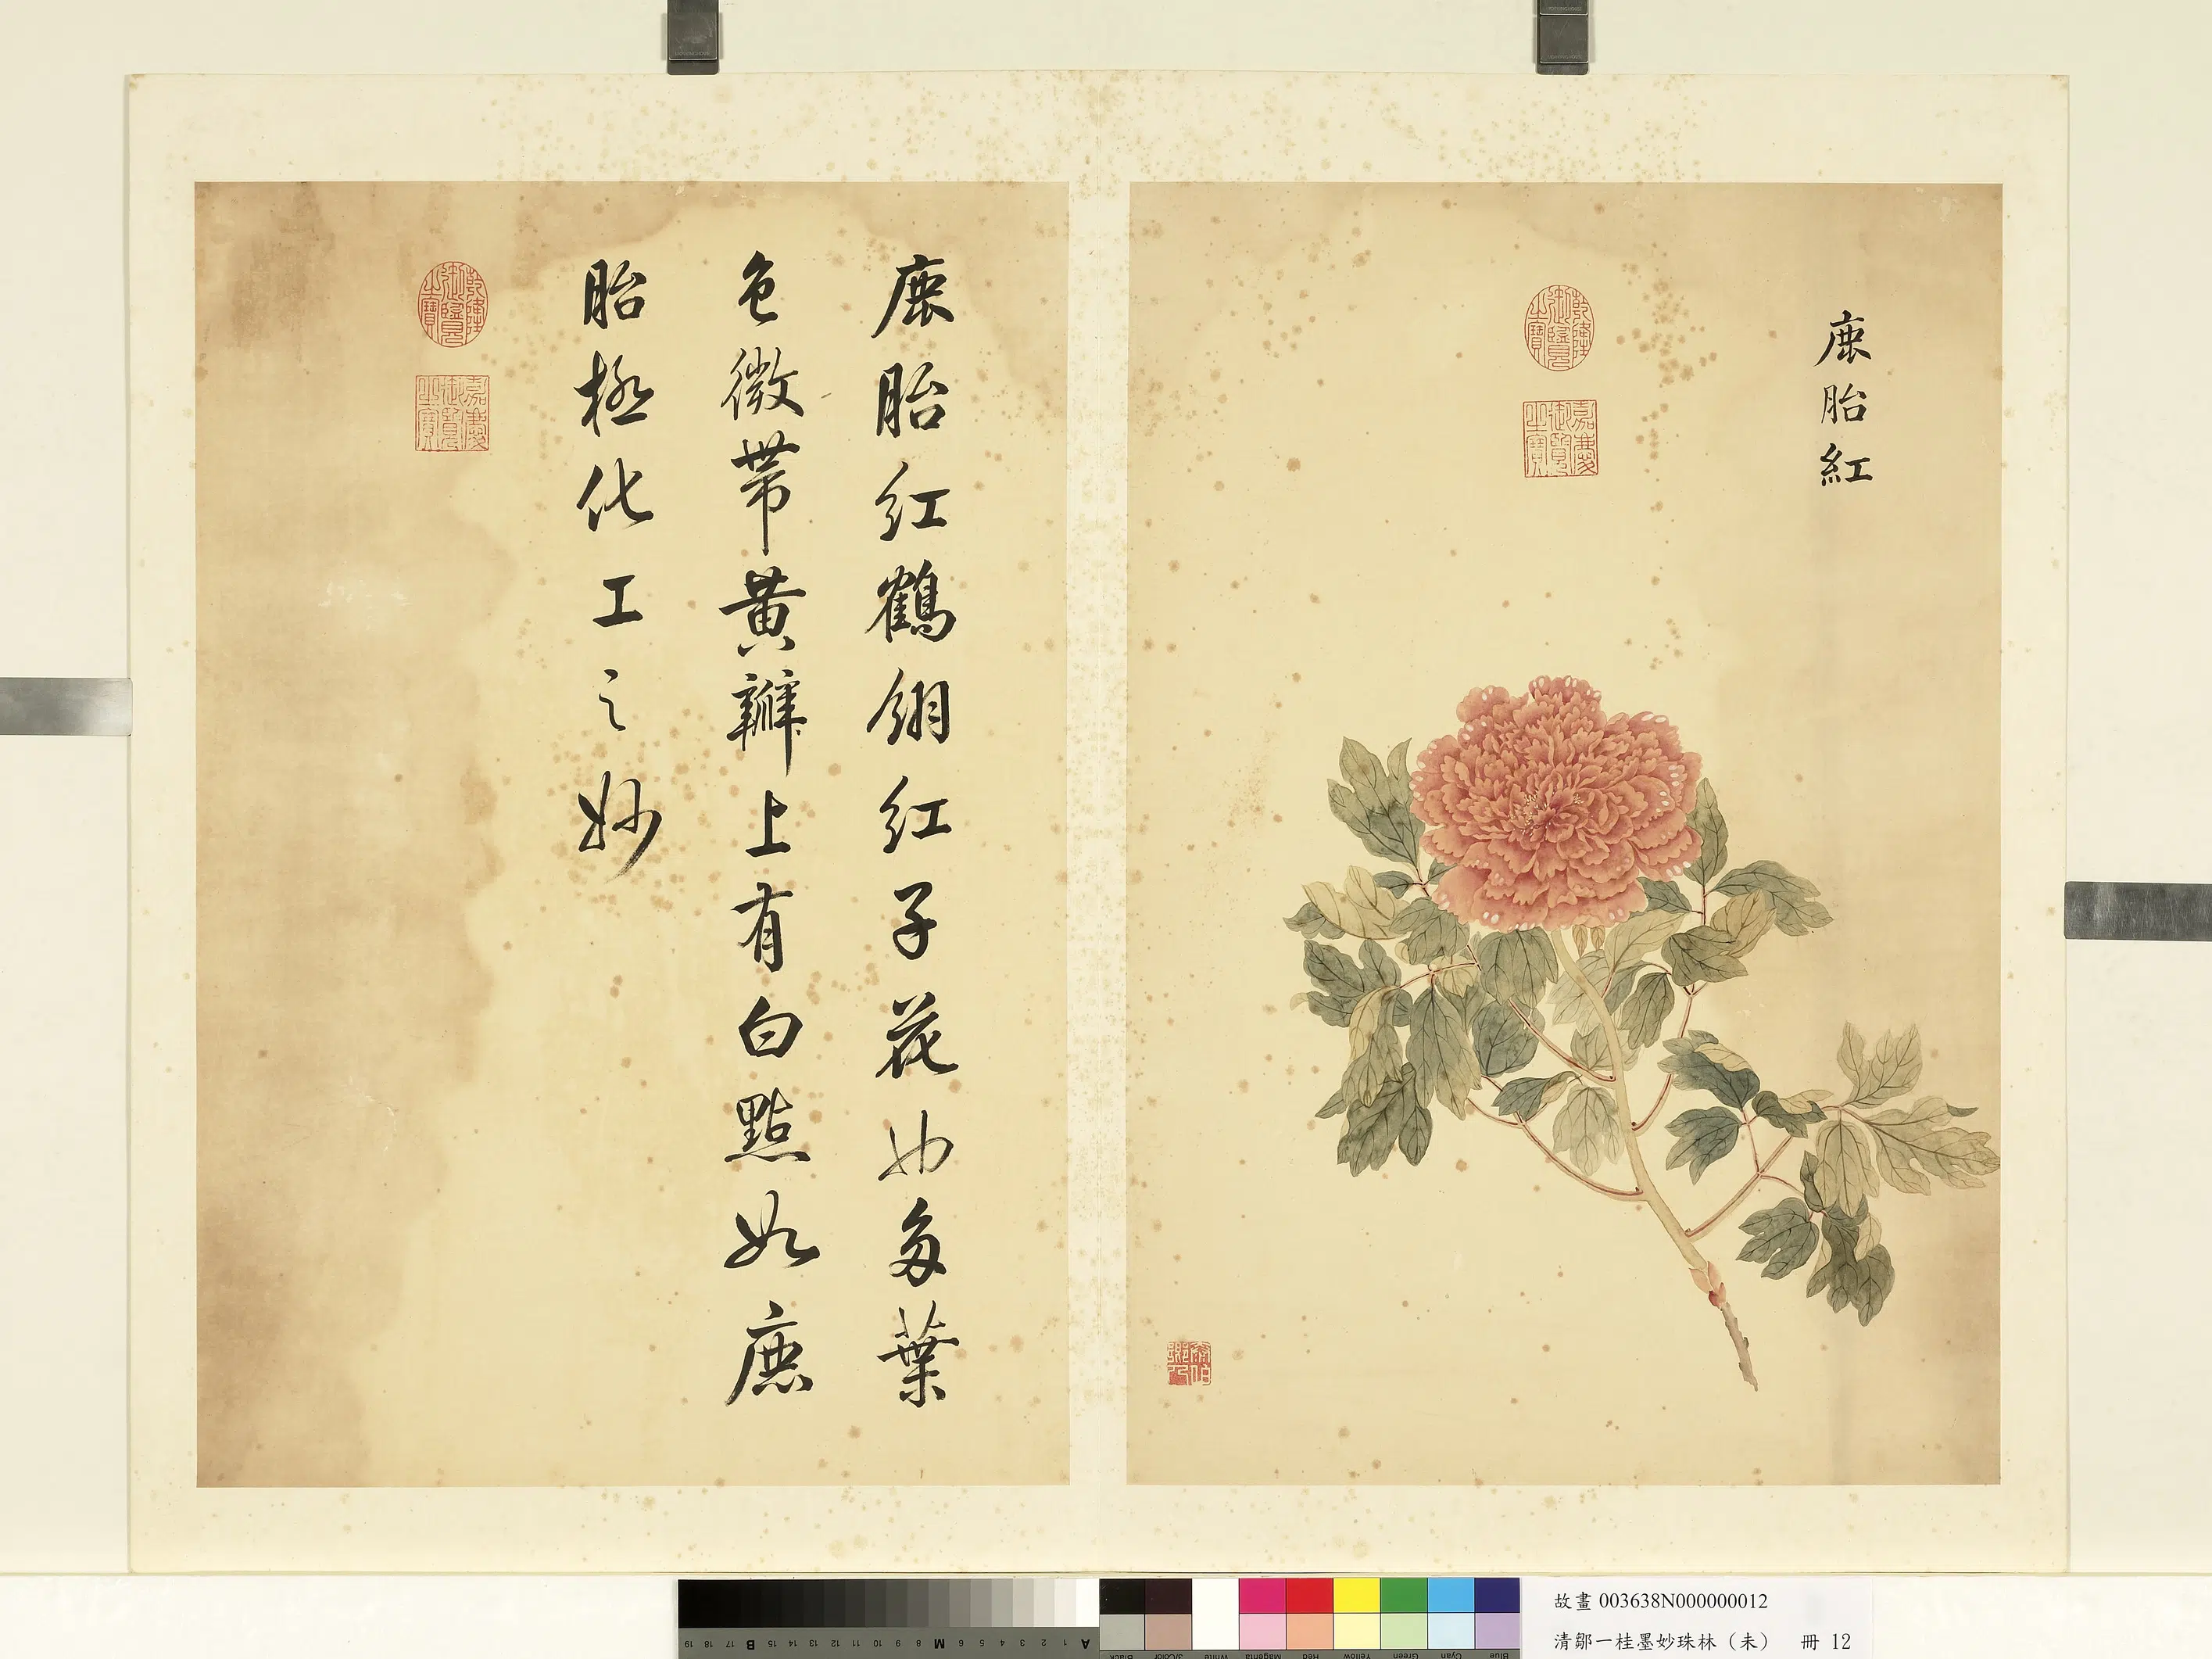 鹿胎紅
乾隆御覽之寶
嘉慶御覽之寶
鹿胎紅鶴翎紅子花也多葉
色微帶黃瓣上有白點如鹿
胎極化工之妙
乾隆御覽之寶
嘉慶御覽之寶
19 18 17 B 15 14 13 12 11 10 9 8 M 6 5 4 3 2 1 A
Black 3/Color White Magenta Red Yellow Green Cyan Blue
故畫 003638N000000012
清鄒一桂墨妙珠林（未） 冊 12